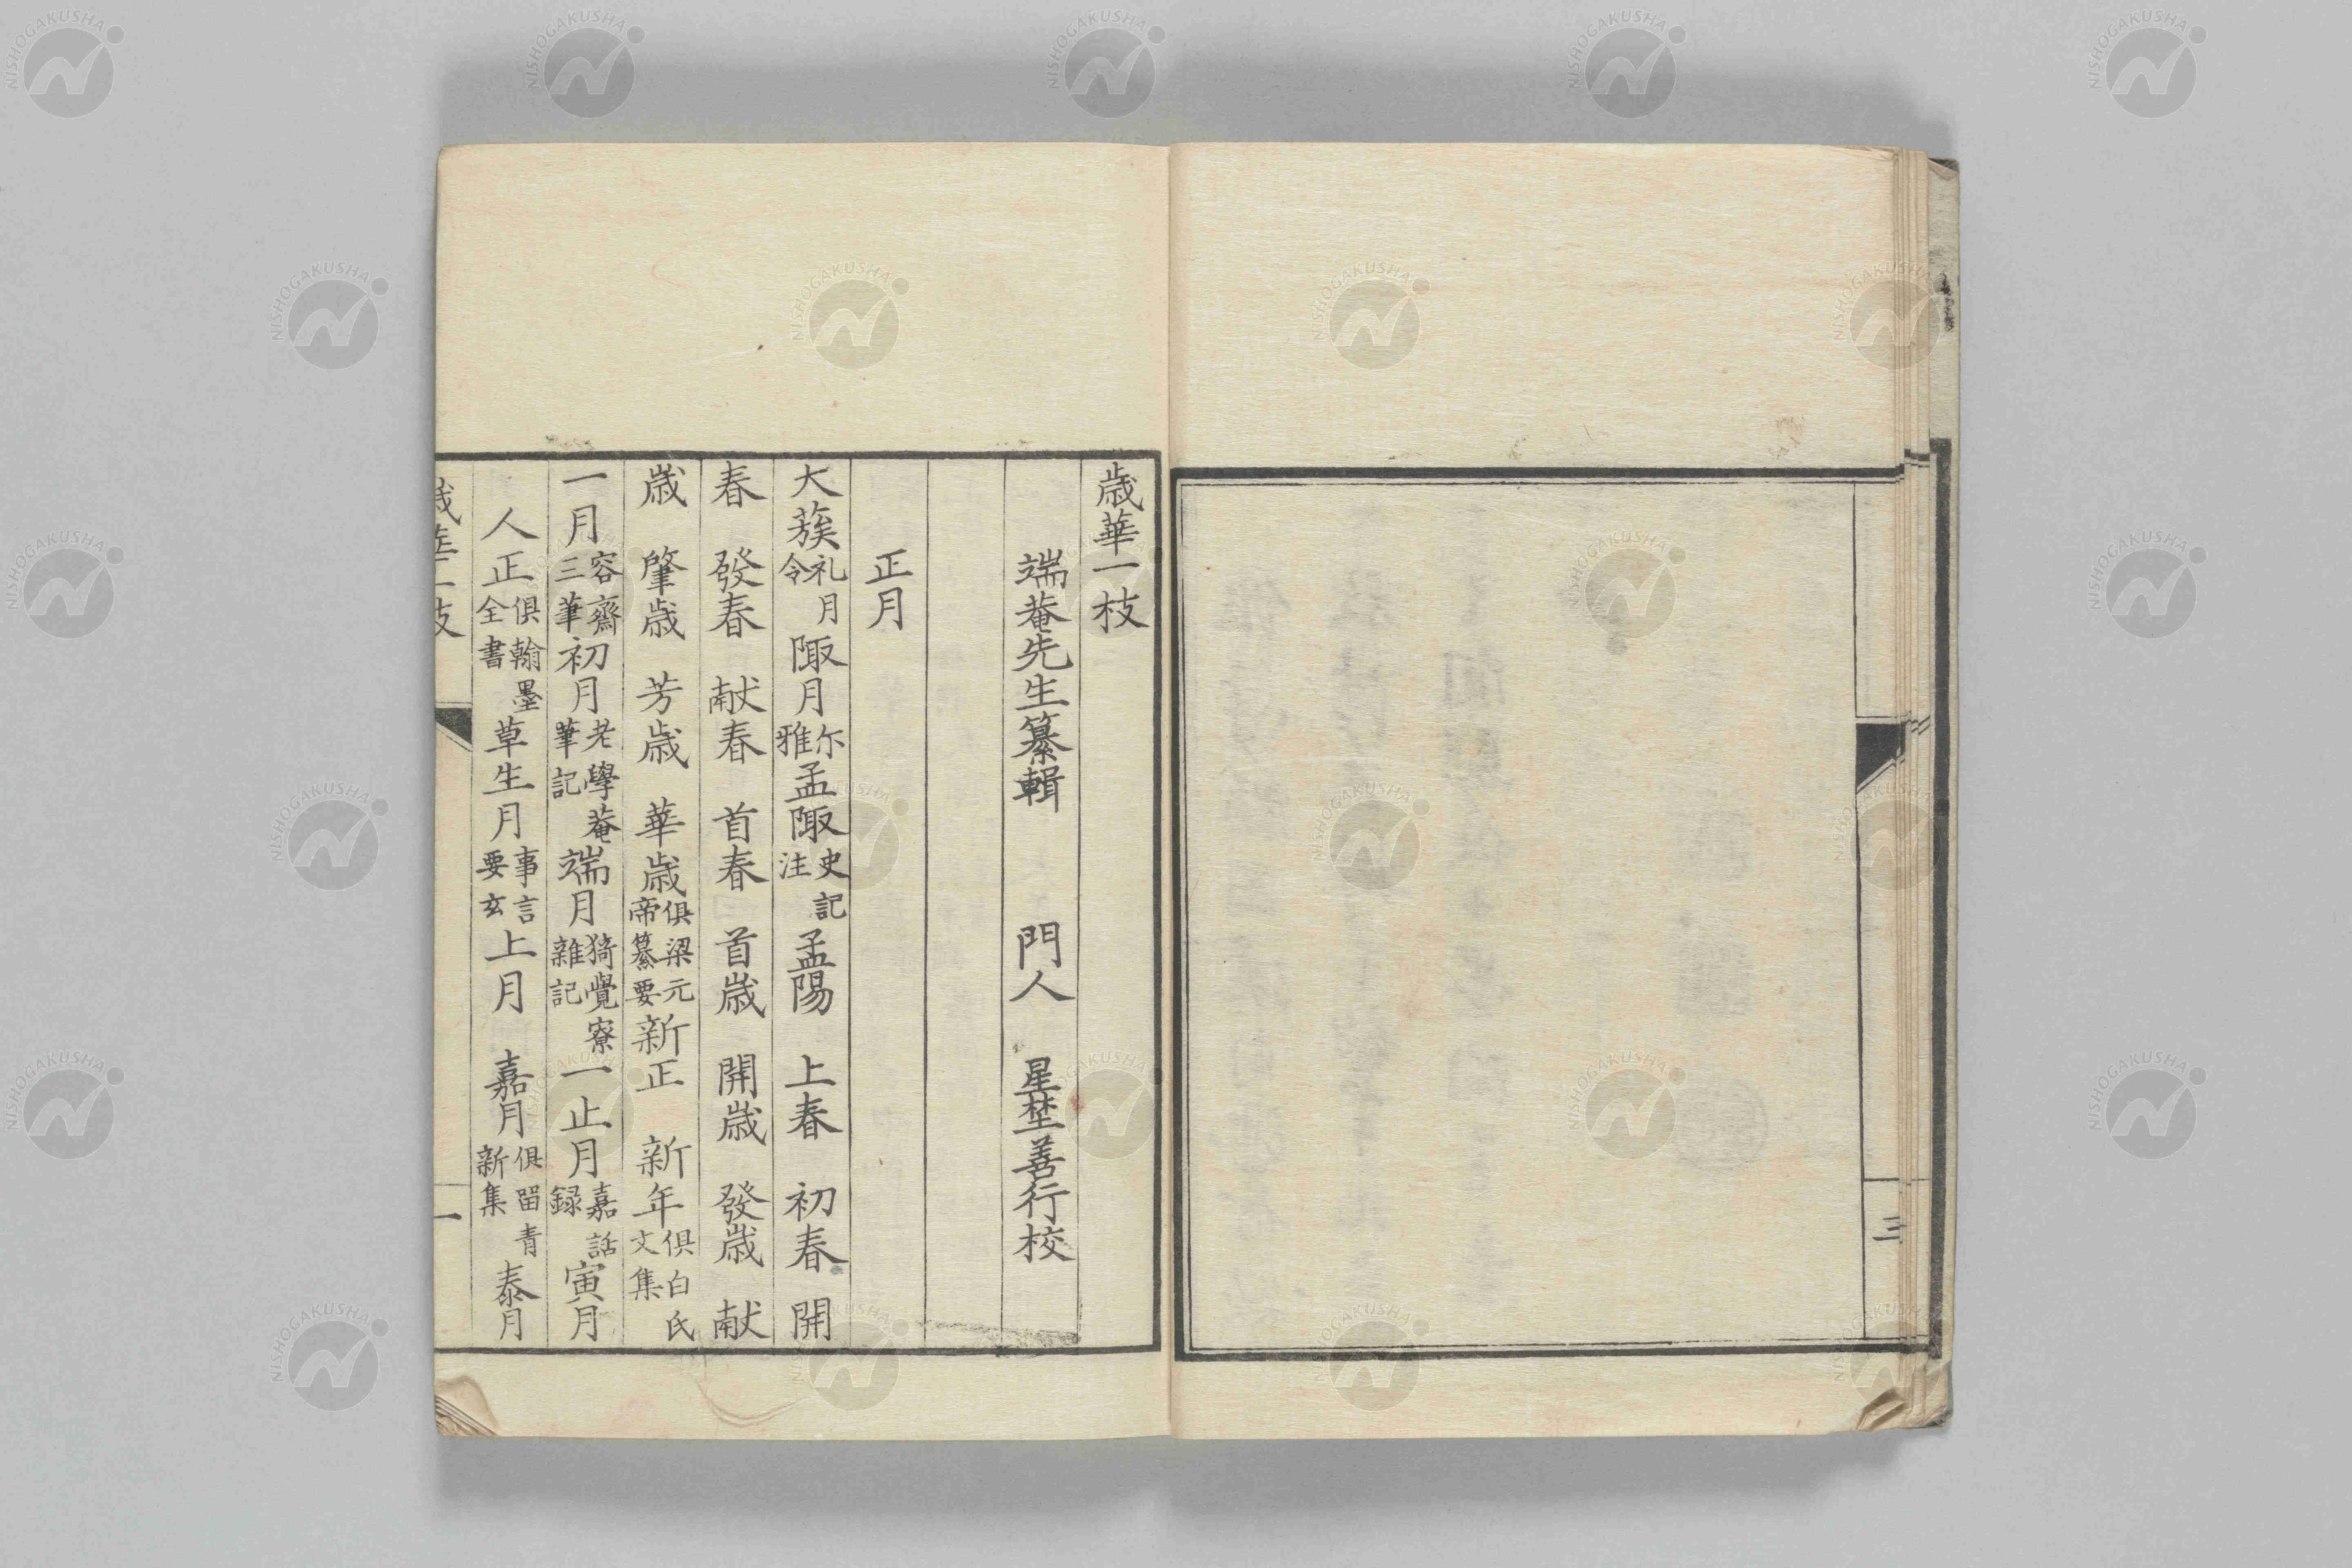 歳華一枝
端菴先生纂輯 門人 星埜善行校
正月
大蔟礼月令陬月尓雅孟陬史記注孟陽 上春 初春 開
春 發春 献春 首春 首歳 開歳 發歳 献
歳 肇歳 芳歳 華歳俱梁元帝纂要新正 新年俱白氏文集
一月容齋三筆初月老學菴筆記端月猗覺寮雜記一止月嘉話録寅月
人正俱翰墨全書草生月事言要玄上月 嘉月俱留青新集泰月
歳華一枝
一
三
NISHOGAKUSHA